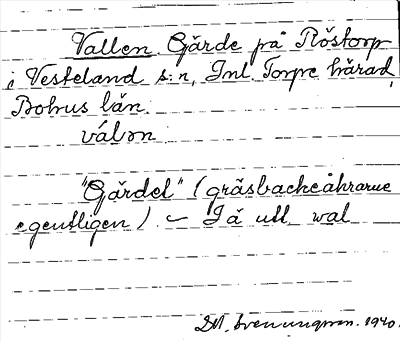 Vallen Gärde på Röstorp
i Vesteland s:n, Inl. Torpe härad,
Bohus län.
vál
"Gärdel" (gräsbackeåkrarne
egentligen) – Iä utt, wal
1940.